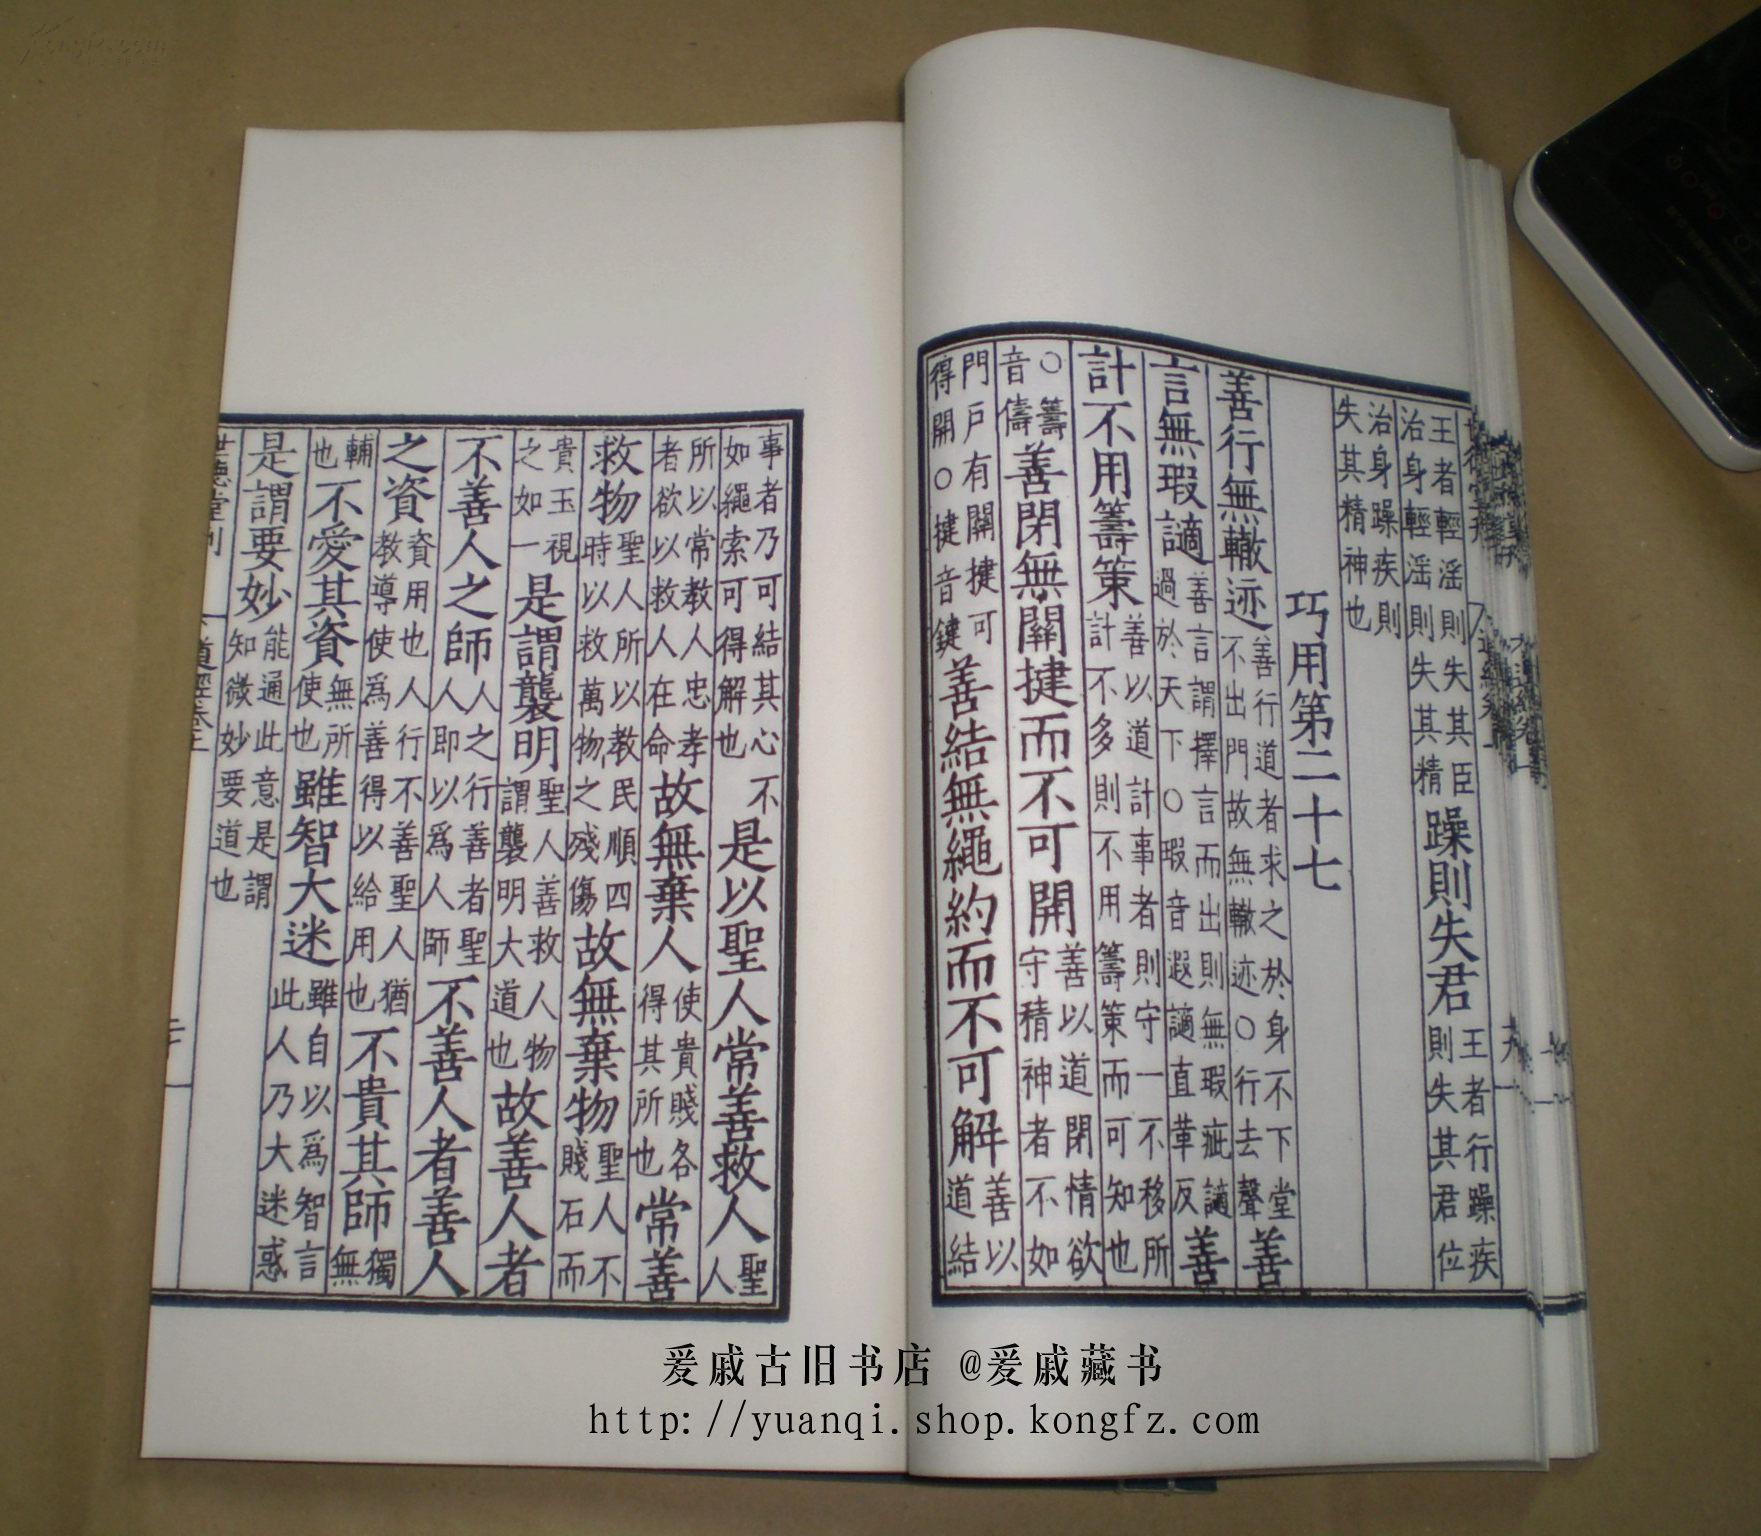 王者輕淫則失其臣治身輕淫則失其精躁則失君王者行躁疾則失其君位
治身躁疾則失其精神也
巧用第二十七
善行無轍迹善行道者求之於身不下堂不出門故無轍迹○行去聲善
言無瑕讁善言謂擇言而出則無瑕疵讁過於天下○瑕音遐讁直革反善
計不用籌策善以道計事者則守一不移所計不多則不用籌策而可知也
○籌音儔善閉無關揵而不可開善以道閉情欲守精神者不如
門戶有關揵可得開○揵音鍵善結無繩約而不可解善以道結
事者乃可結其心不如繩索可得解也是以聖人常善救人聖人
所以常教人忠孝者欲以救人在命故無棄人使貴賤各得其所也常善
救物聖人所以教民順四時以救萬物之殘傷故無棄物聖人不賤石而
貴玉視之如一是謂襲明聖人善救人物謂襲明大道也故善人者
不善人之師人之行善者聖人即以爲人師不善人者善人
之資資用也人行不善聖人猶教導使爲善得以給用也不貴其師獨無
輔也不愛其資無所使也雖智大迷雖自以爲智言此人乃大迷惑
是謂要妙能通此意是謂知微妙要道也
世德堂刊 道經卷上
爰戚古旧书店 @爰戚藏书
http://yuanqi.shop.kongfz.com